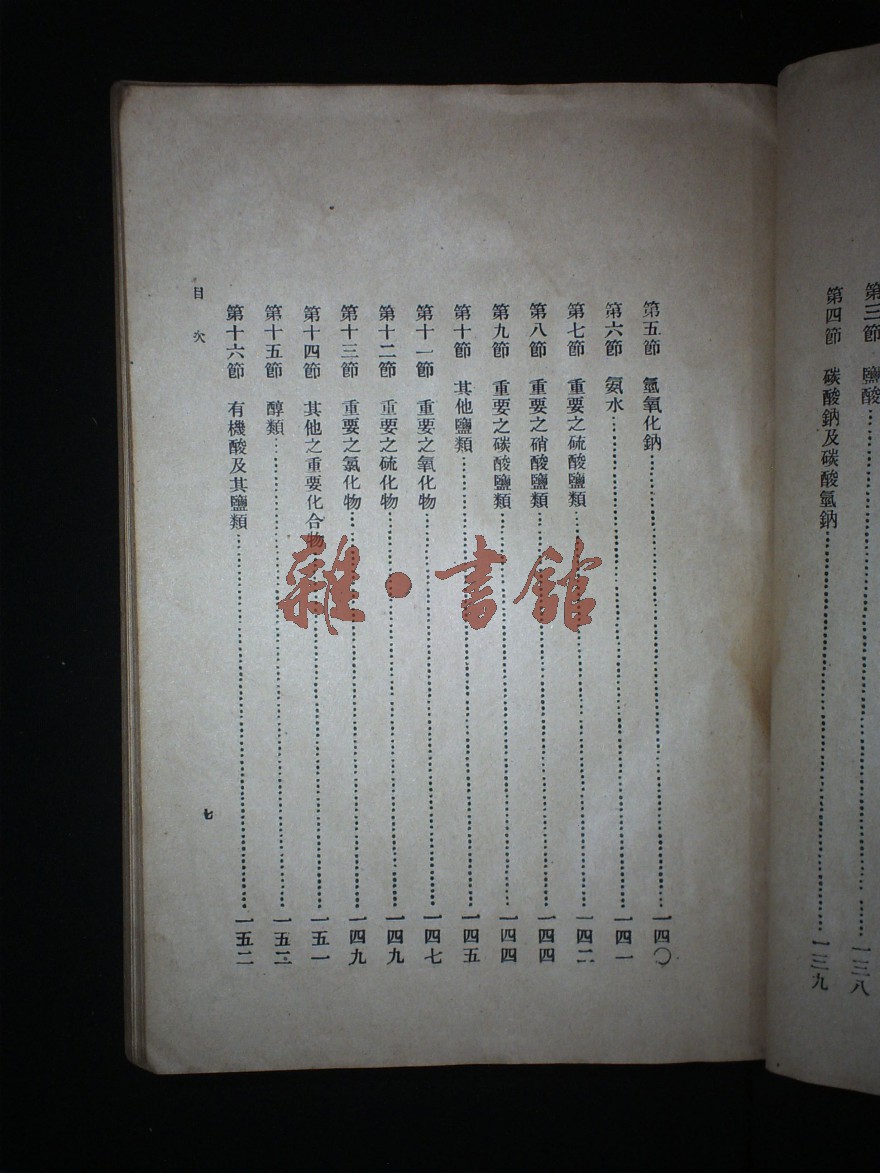 第三節 鹽酸……一三八
第四節 碳酸鈉及碳酸氫鈉……一三九
第五節 氫氧化鈉……一四〇
第六節 氨水……一四一
第七節 重要之硫酸鹽類……一四二
第八節 重要之硝酸鹽類……一四四
第九節 重要之碳酸鹽類……一四四
第十節 其他鹽類……一四五
第十一節 重要之氧化物……一四七
第十二節 重要之硫化物……一四九
第十三節 重要之氯化物……一四九
第十四節 其他之重要化合物……一五一
第十五節 醇類……一五二
第十六節 有機酸及其鹽類……一五二
目次
七
雜·書館